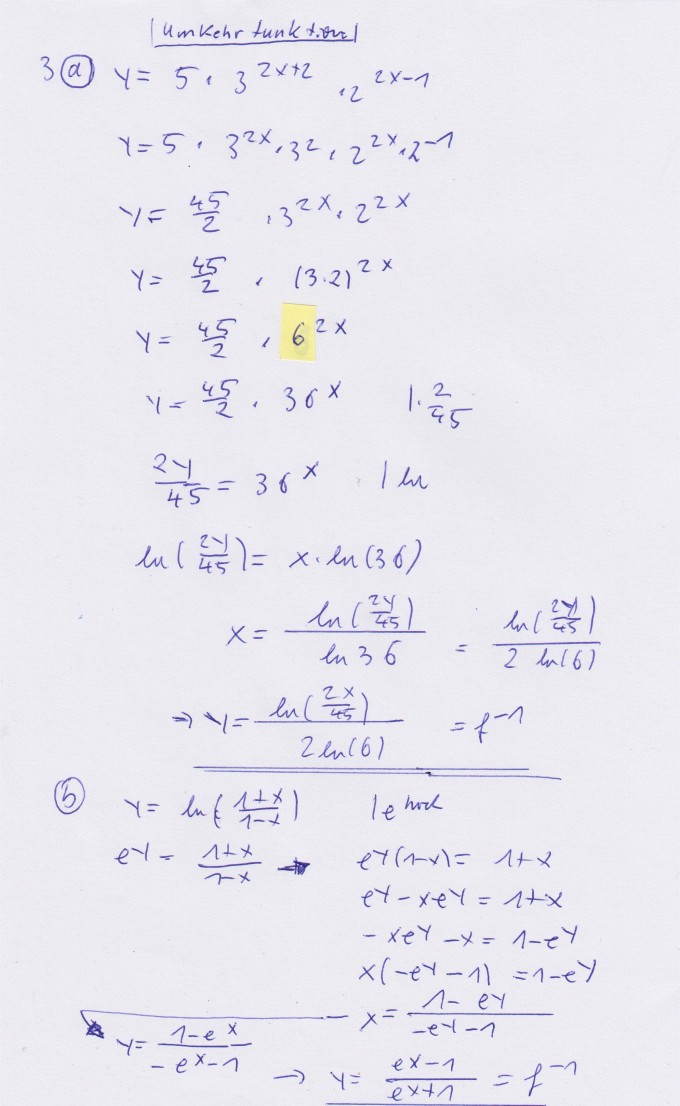 Umkehrfunktion
3 a) y = 5 · 3^(2x+2) · 2^(2x-1)
y = 5 · 3^(2x) · 3^2 · 2^(2x) · 2^(-1)
y = 45/2 · 3^(2x) · 2^(2x)
y = 45/2 · (3·2)^(2x)
y = 45/2 · 6^(2x)
y = 45/2 · 36^x |· 2/45
2y/45 = 36^x | ln
ln(2y/45) = x · ln(36)
x = ln(2y/45) / ln 36 = ln(2y/45) / (2 ln(6))
⇒ y = ln(2x/45) / (2 ln(6)) = f^(-1)
b) y = ln((1+x)/(1-x)) | e hoch
e^y = (1+x)/(1-x) → e^y(1-x) = 1+x
e^y - xe^y = 1+x
-xe^y - x = 1-e^y
x(-e^y - 1) = 1-e^y
x = (1-e^y)/(-e^y-1)
y = (1-e^x)/(-e^x-1) → y = (e^x-1)/(e^x+1) = f^(-1)